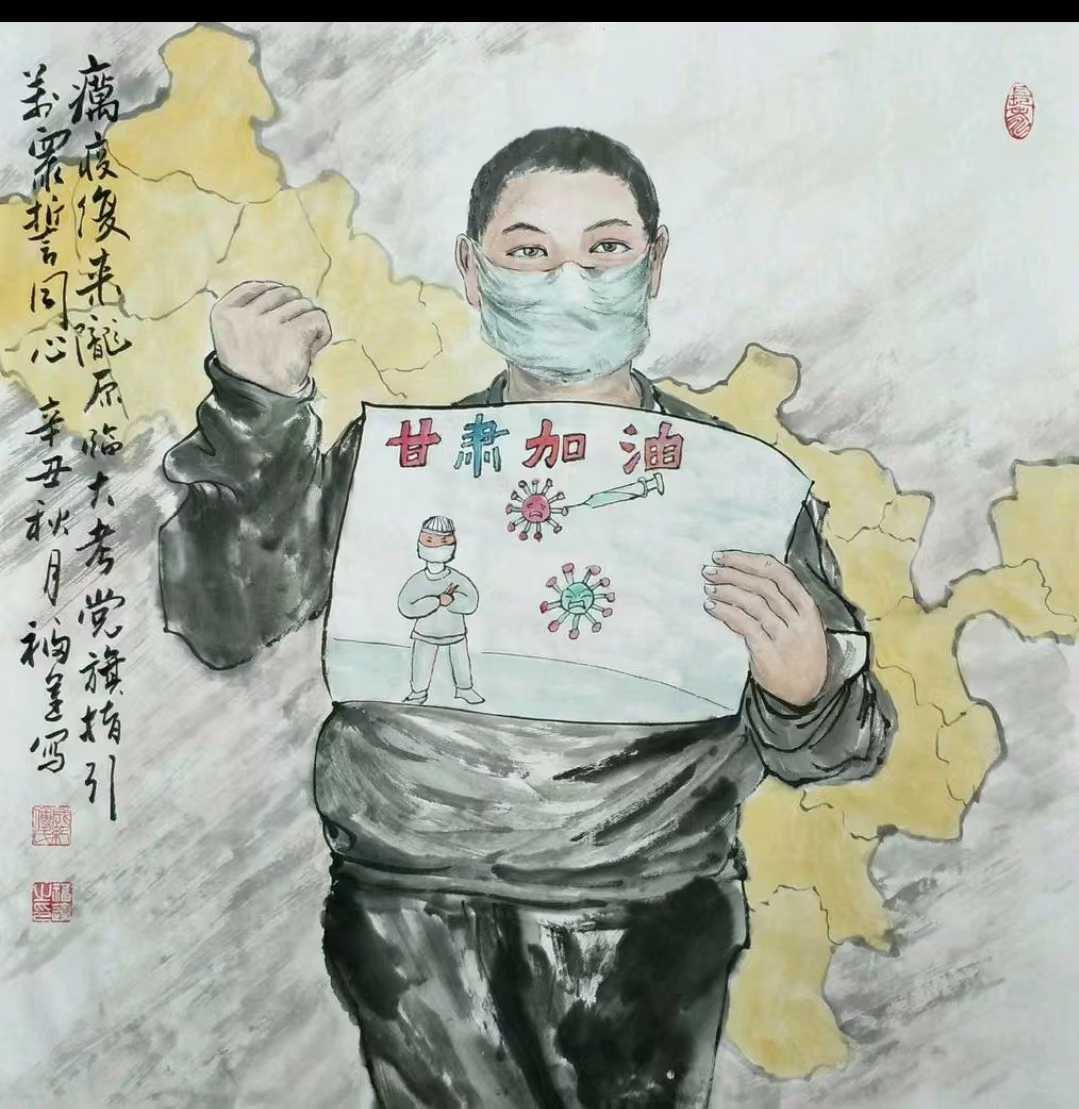 癘疫復来隴原臨大考党旗指引
萬眾誓同心 辛丑秋月福運写
甘肃加油